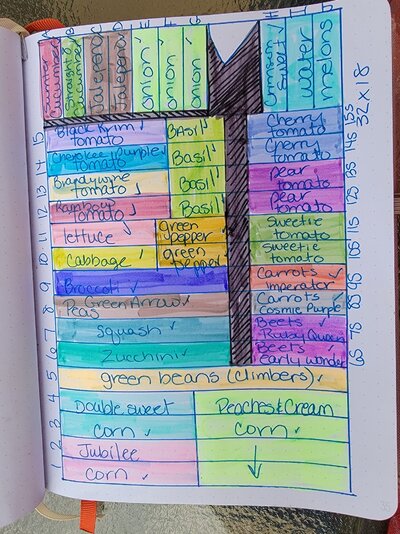 Sumter
Cucumber
Straight 8
Cucumber
Jalapeno
Jalapeno
onion ✓
onion ✓
onion ✓
Crimson
Sweet
water
melons
32 x 18
15
Black Krim ✓
tomato
Basil ✓
Cherry
tomato
15s
14
Cherokee Purple ✓
tomato
Basil ✓
Cherry
tomato
14s
13
Brandywine
tomato ✓
Basil ✓
Pear
tomato
13s
12
Rainbow
tomato ✓
Basil ✓
Pear
tomato
12s
11
lettuce ✓
green
pepper ✓
Sweetie
tomato
11s
10
Cabbage ✓
green
pepper ✓
Sweetie
tomato
9
Broccoli ✓
Carrots ✓
Imperator
9s
8
Green Arrow ✓
Peas
Carrots ✓
Cosmic Purple
8s
7
Squash ✓
Beets ✓
Ruby Queen
7s
6
Zucchini ✓
Beets ✓
early wonder
6s
5
green beans (climbers) ✓
4
Double sweet
Peaches & Cream
3
corn ✓
corn ✓
2
Jubilee
1
corn ✓